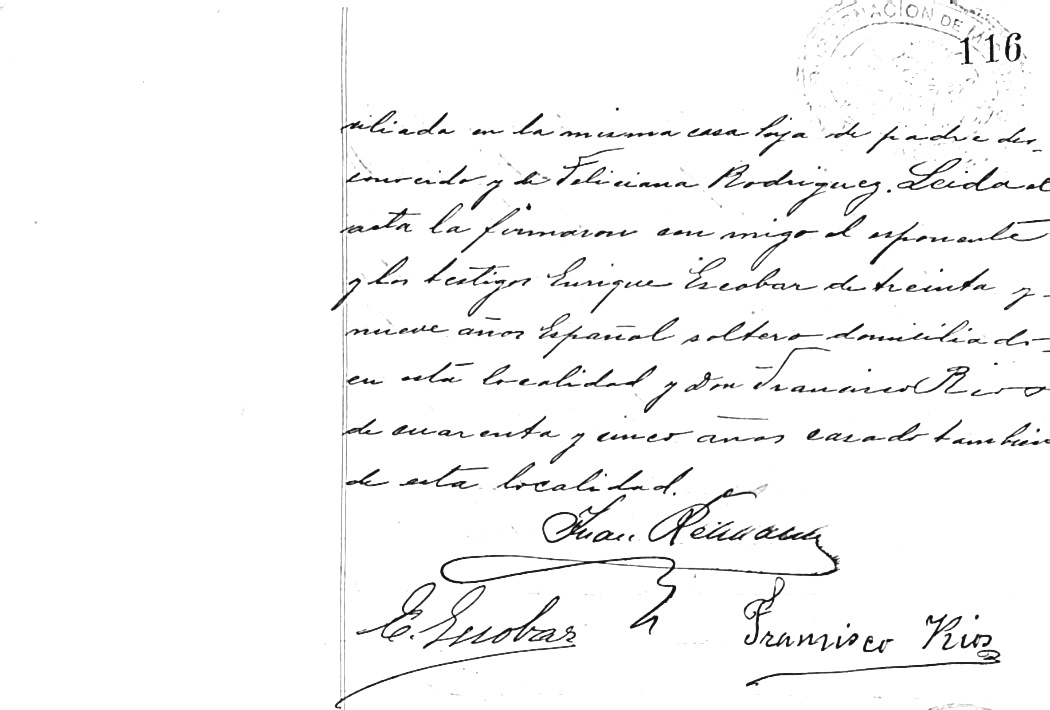 NACION DE
116
siliada en la misma casa hija de padre des-
conocido y de Feliciana Rodriguez. Leida el
acta la firmaron con migo el esponente
y los testigos Enrique Escobar de treinta y-
nueve años Español soltero domiciliado-
en esta localidad y Don Francisco Rios
de cuarenta y cinco años casado tambien
de esta localidad.
Juan
E. Escobar
Francisco Rios